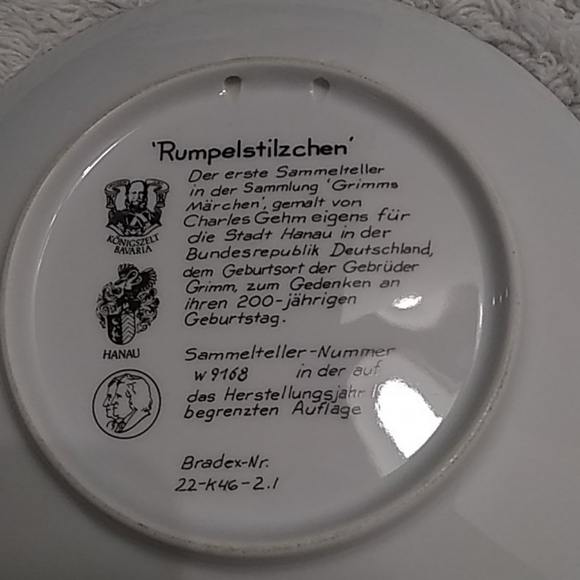 'Rumpelstilzchen'
Der erste Sammelteller
in der Sammlung 'Grimms
Märchen', gemalt von
Charles Gehm eigens für
die Stadt Hanau in der
Bundesrepublik Deutschland,
dem Geburtsort der Gebrüder
Grimm, zum Gedenken an
ihren 200-jährigen
Geburtstag.
KÖNIGSZELT
BAVARIA
HANAU
Sammelteller-Nummer
W9168 in der auf
das Herstellungsjahr
begrenzten Auflage
Bradex-Nr.
22-K46-2.1